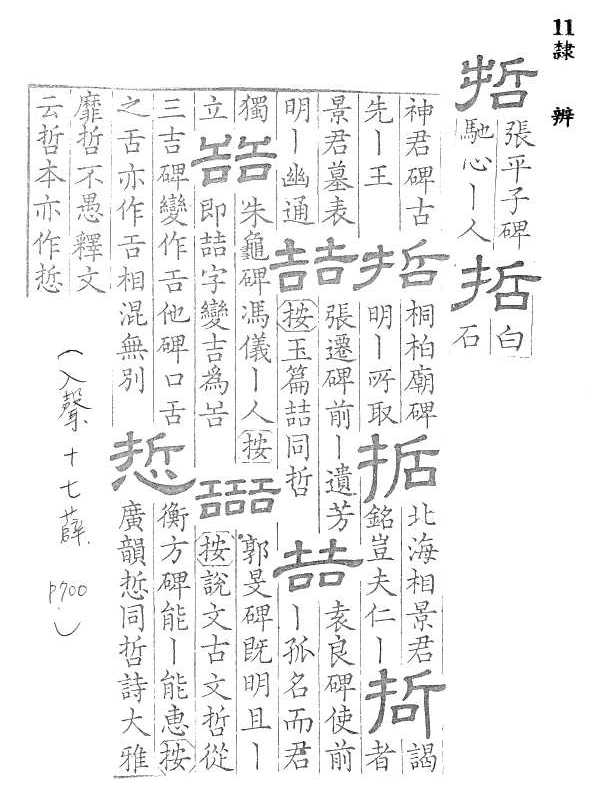 11 隸辨
哲
張平子碑
馳心丨人
哲
白
石
神君碑古
先丨王
哲
桐柏廟碑
明丨所取
哲
北海相景君
銘豈夫仁丨
哲
謁
者
景君墓表
明丨幽通
喆
張遷碑前丨遺芳
按玉篇喆同哲
喆
袁良碑使前
丨孤名而君
獨
立
朱龜碑馮儀丨人按
即喆字變吉為
郭旻碑既明且丨
按說文古文哲從
三吉碑變作 他碑口舌
之舌亦作 相混無別
悊
衡方碑能丨能惠按
廣韻悊同哲詩大雅
靡哲不愚釋文
云哲本亦作悊
(入聲十七薛 p700)